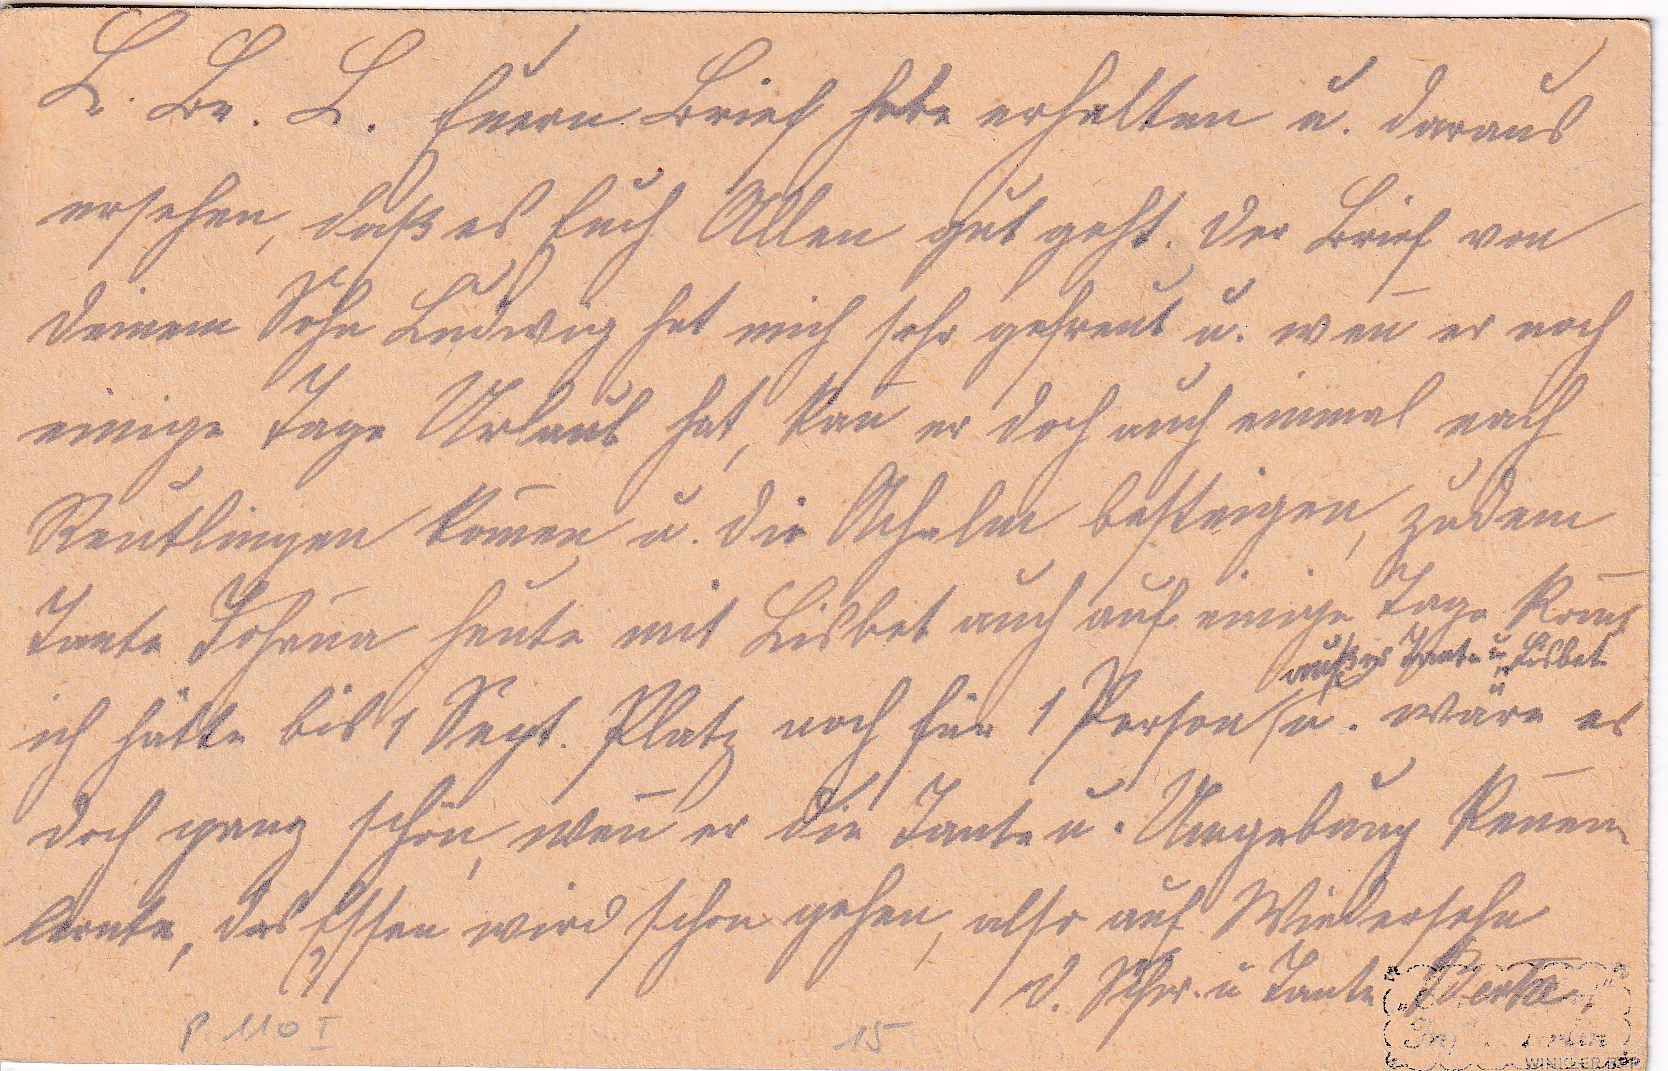 L. Br. L. Euern Brief habe erhalten u. daraus
ersehen, daß es Euch Allen gut geht. Der Brief von
Deinem Sohn Ludwig hat mich sehr gefreut u. wen̄ er noch
einige Tage Urlaub hat, kan̄ er doch auch einmal nach
Reutlingen kom̄en u. die Achalm besteigen, zudem
Tante Johan̄a heute mit Lisbet auch auf einige Tage kom̄t
außer Tante u. Lisbet
ich hätte bis 1 Sept. Platz noch für 1 Person u. wäre es
doch ganz schön, wen̄ er die Tante u. Umgebung ken̄en
lernte, das Essen wird schon gehen, also auf Wiedersehn
d. Schw. u Tante
P 110 I
15